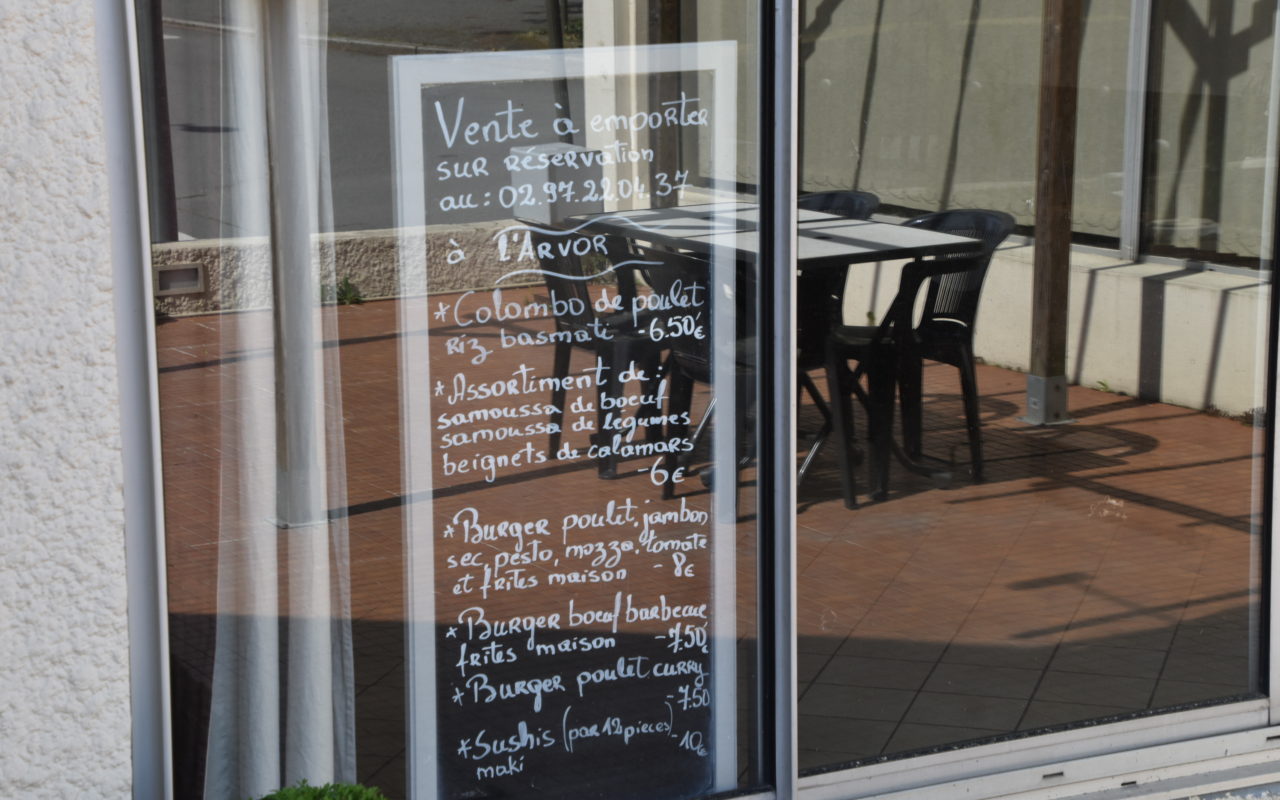 Vente à emporter
sur réservation
au : 02.97.22.04.37
à l'ARVOR
*Colombo de poulet
riz basmati -6.50€
*Assortiment de :
samoussa de boeuf
samoussa de légumes
beignets de calamars
-6€
*Burger poulet, jambon
sec, pesto, mozza, tomate
et frites maison - 8€
*Burger boeuf barbecue
frites maison -7.50€
*Burger poulet curry
-7.50
*Sushis (par 12 pieces)
- 10€
maki